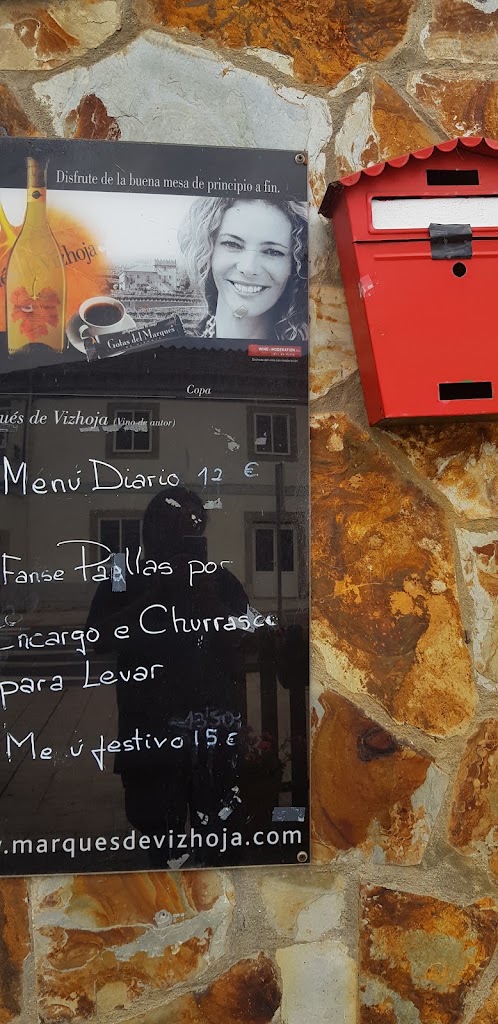 Disfrute de la buena mesa de principio a fin.
Vizhoja
Gotas del Marqués
WINE in MODERATION
Copa
ués de Vizhoja (Vino de autor)
Menú Diario 12 €
Fanse Paellas por
Encargo e Churrasco
para Levar
13'50
Me ú festivo 15 €
.marquesdevizhoja.com